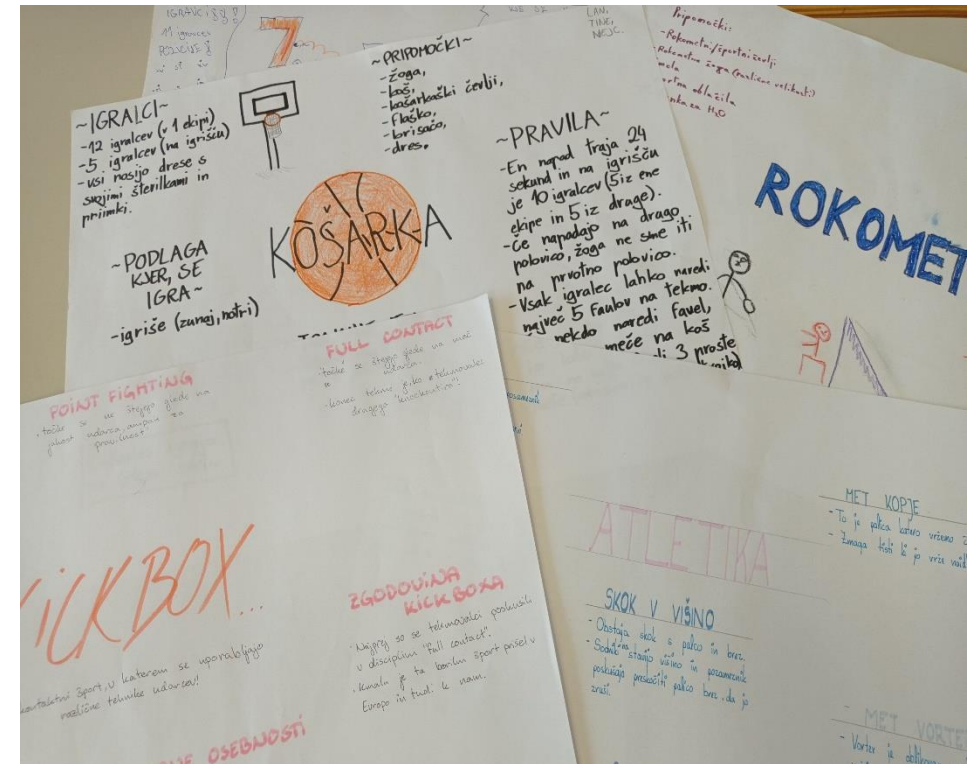 IGRALCI
11 igralcev
7
LAN,
TINE,
NEJC.
~IGRALCI~
-12 igralcev (v 1 ekipi)
-5 igralcev (na igrišču)
-vsi nosijo drese s
svojimi številkami in
priimki.
~PODLAGA
KJER, SE
IGRA~
-igriše (zunaj, notri)
KOŠARKA
~PRIPOMOČKI~
-žoga,
-koš,
-košarkaški čevlji,
-flaško,
-brisačo,
-dres.
~PRAVILA~
-En napad traja 24
sekund in na igrišču
je 10 igralcev (5 iz ene
ekipe in 5 iz druge).
-Če napadajo na drago
polovico, žoga ne sme iti
na prvotno polovico.
-Vsak igralec lahko naredi
največ 5 faulov na tekmo.
nekdo naredi favel,
meče na koš
3 proste
Pripomočki:
-Rokometni/športni čevlji
-Rokometna žoga (različne velikosti)
oblačila
za H2O
ROKOMET
POINT FIGHTING
-točke se ne štejejo glede na
jakost udarca, ampak za
pravilnost
FULL CONTACT
točke se štejejo glede na moč
udarca
-konec tekme je, ko tekmovalec
drugega "knockouta"
KICKBOX...
kontaktni šport, v katerem se uporabljajo
različne tehnike udarcev!
ZGODOVINA
KICKBOXA
-Najprej so se tekmovalci poskusili
v disciplini "full contact".
-Kmalu je ta borilni šport prišel v
Evropo in tudi k nam.
OSEBNOSTI
ATLETIKA
SKOK V VIŠINO
-Obstaja skok s palico in brez.
-Sodniki stavijo višino in posameznik
poskušajo preskočiti palico brez, da jo
zruši.
MET KOPJE
-To je palica katero vržemo
-Zmaga tisti ki jo vrže
-MET VORTE
-Vortex je